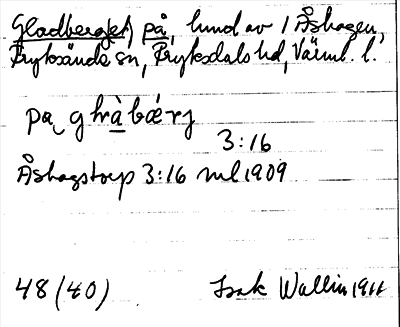 Gladberget, på, hmd av 1 Åshagen,
Fryksände sn, Fryksdals hd, Värml. l.
pa g hràbærj
3:16
Åshagstorp 3:16 ml 1909
48 (40) Isak Wallin 1911